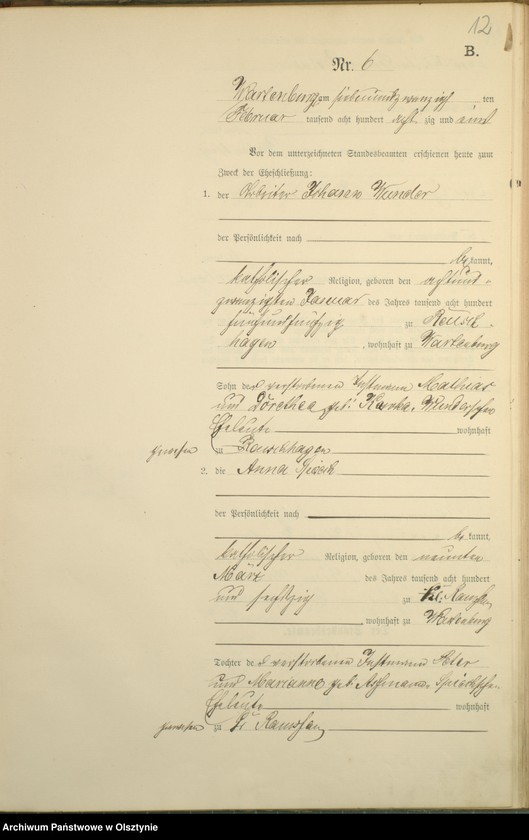 12
B.
Nr. 6
Wartenburg am siebenundzwanzig ten
Februar tausend acht hundert acht zig und eins
Vor dem unterzeichneten Standesbeamten erschienen heute zum
Zweck der Eheschließung:
1. der Arbeiter Johann Wunder
der Persönlichkeit nach
be kannt,
katholischer Religion, geboren den achtund-
zwanzigsten Januar des Jahres tausend acht hundert
fünfundfünfzig zu Reusch-
hagen, wohnhaft zu Wartenburg
Sohn der verstorbenen Instmann Mathias
und Dorothea geb. Wunderschen
Eheleute wohnhaft
gewesen zu Reuschhagen
2. die Anna
der Persönlichkeit nach
be kannt,
katholischer Religion, geboren den neunten
März des Jahres tausend acht hundert
und sechszig zu
, wohnhaft zu Wartenburg
Tochter der verstorbenen Instmann Peter
und Marianna geb.
Eheleute wohnhaft
gewesen zu
Archiwum Państwowe w Olsztynie